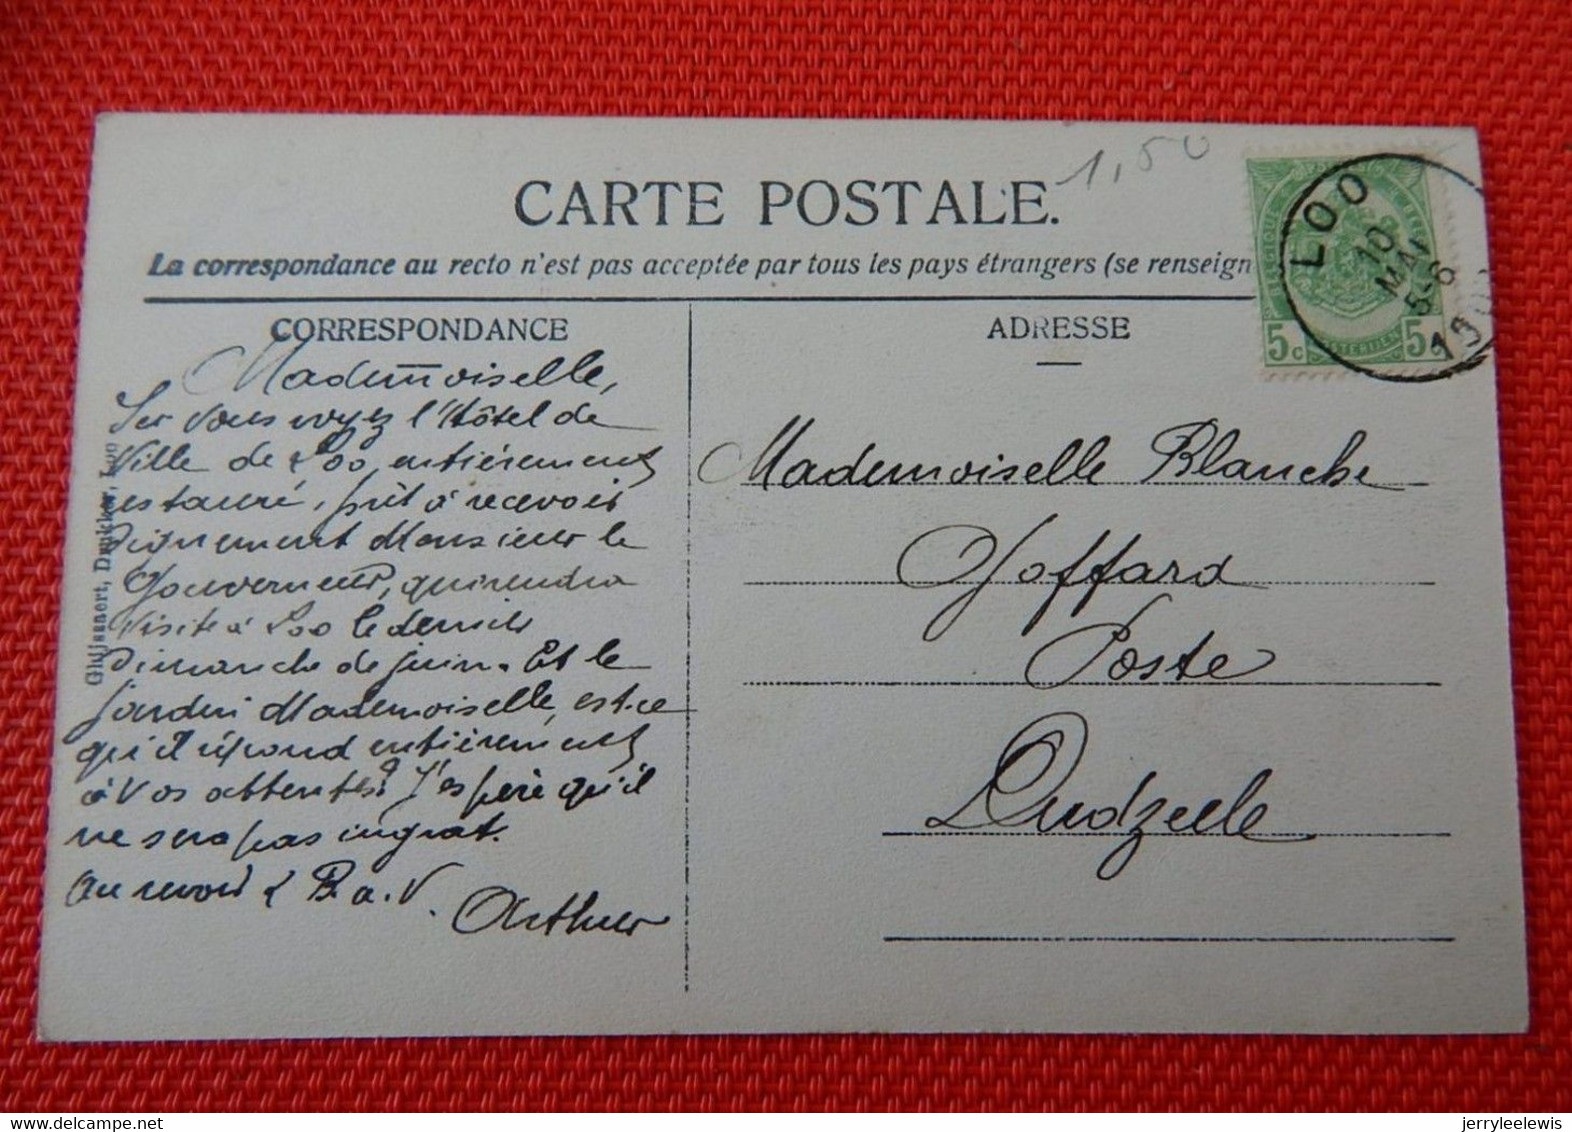 1,50
CARTE POSTALE.
La correspondance au recto n'est pas acceptée par tous les pays étrangers (se renseign
LOO
10
MAI
5-6
BELGIQUE
5c 5c
CORRESPONDANCE
ADRESSE
Mademoiselle,
Ici vous voyez l'Hôtel de
Ville de Loo, entièrement
restauré, prêt à recevoir
dignement Monsieur le
Gouverneur, qui rendra
visite à Loo le dernier
Dimanche de juin. Et le
jardin Mademoiselle, est-ce
qu'il répond entièrement
à vos attentes? J'espère qu'il
ne sera pas ingrat.
Au revoir & B. a. V.
Arthur
Mademoiselle Blanche
Goffard
Poste
Dudzeele
Ghijssaert, Drukker, Loo
jerryleelewis